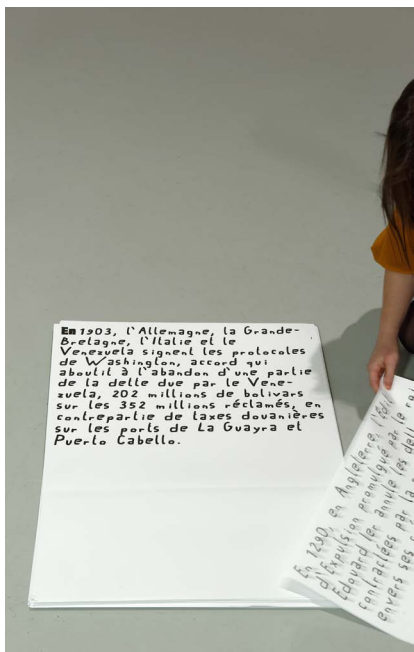 En 1903, l'Allemagne, la Grande-
Bretagne, l'Italie et le
Venezuela signent les protocoles
de Washington, accord qui
aboutit à l'abandon d'une partie
de la dette due par le Vene-
zuela, 202 millions de bolivars
sur les 352 millions réclamés, en
contrepartie de taxes douanières
sur les ports de La Guayra et
Puerto Cabello.
En 1290, en Angleterre, l'Édit
d'Expulsion promulgué par le roi
Édouard Ier annule les dett
contractées par la
envers ses